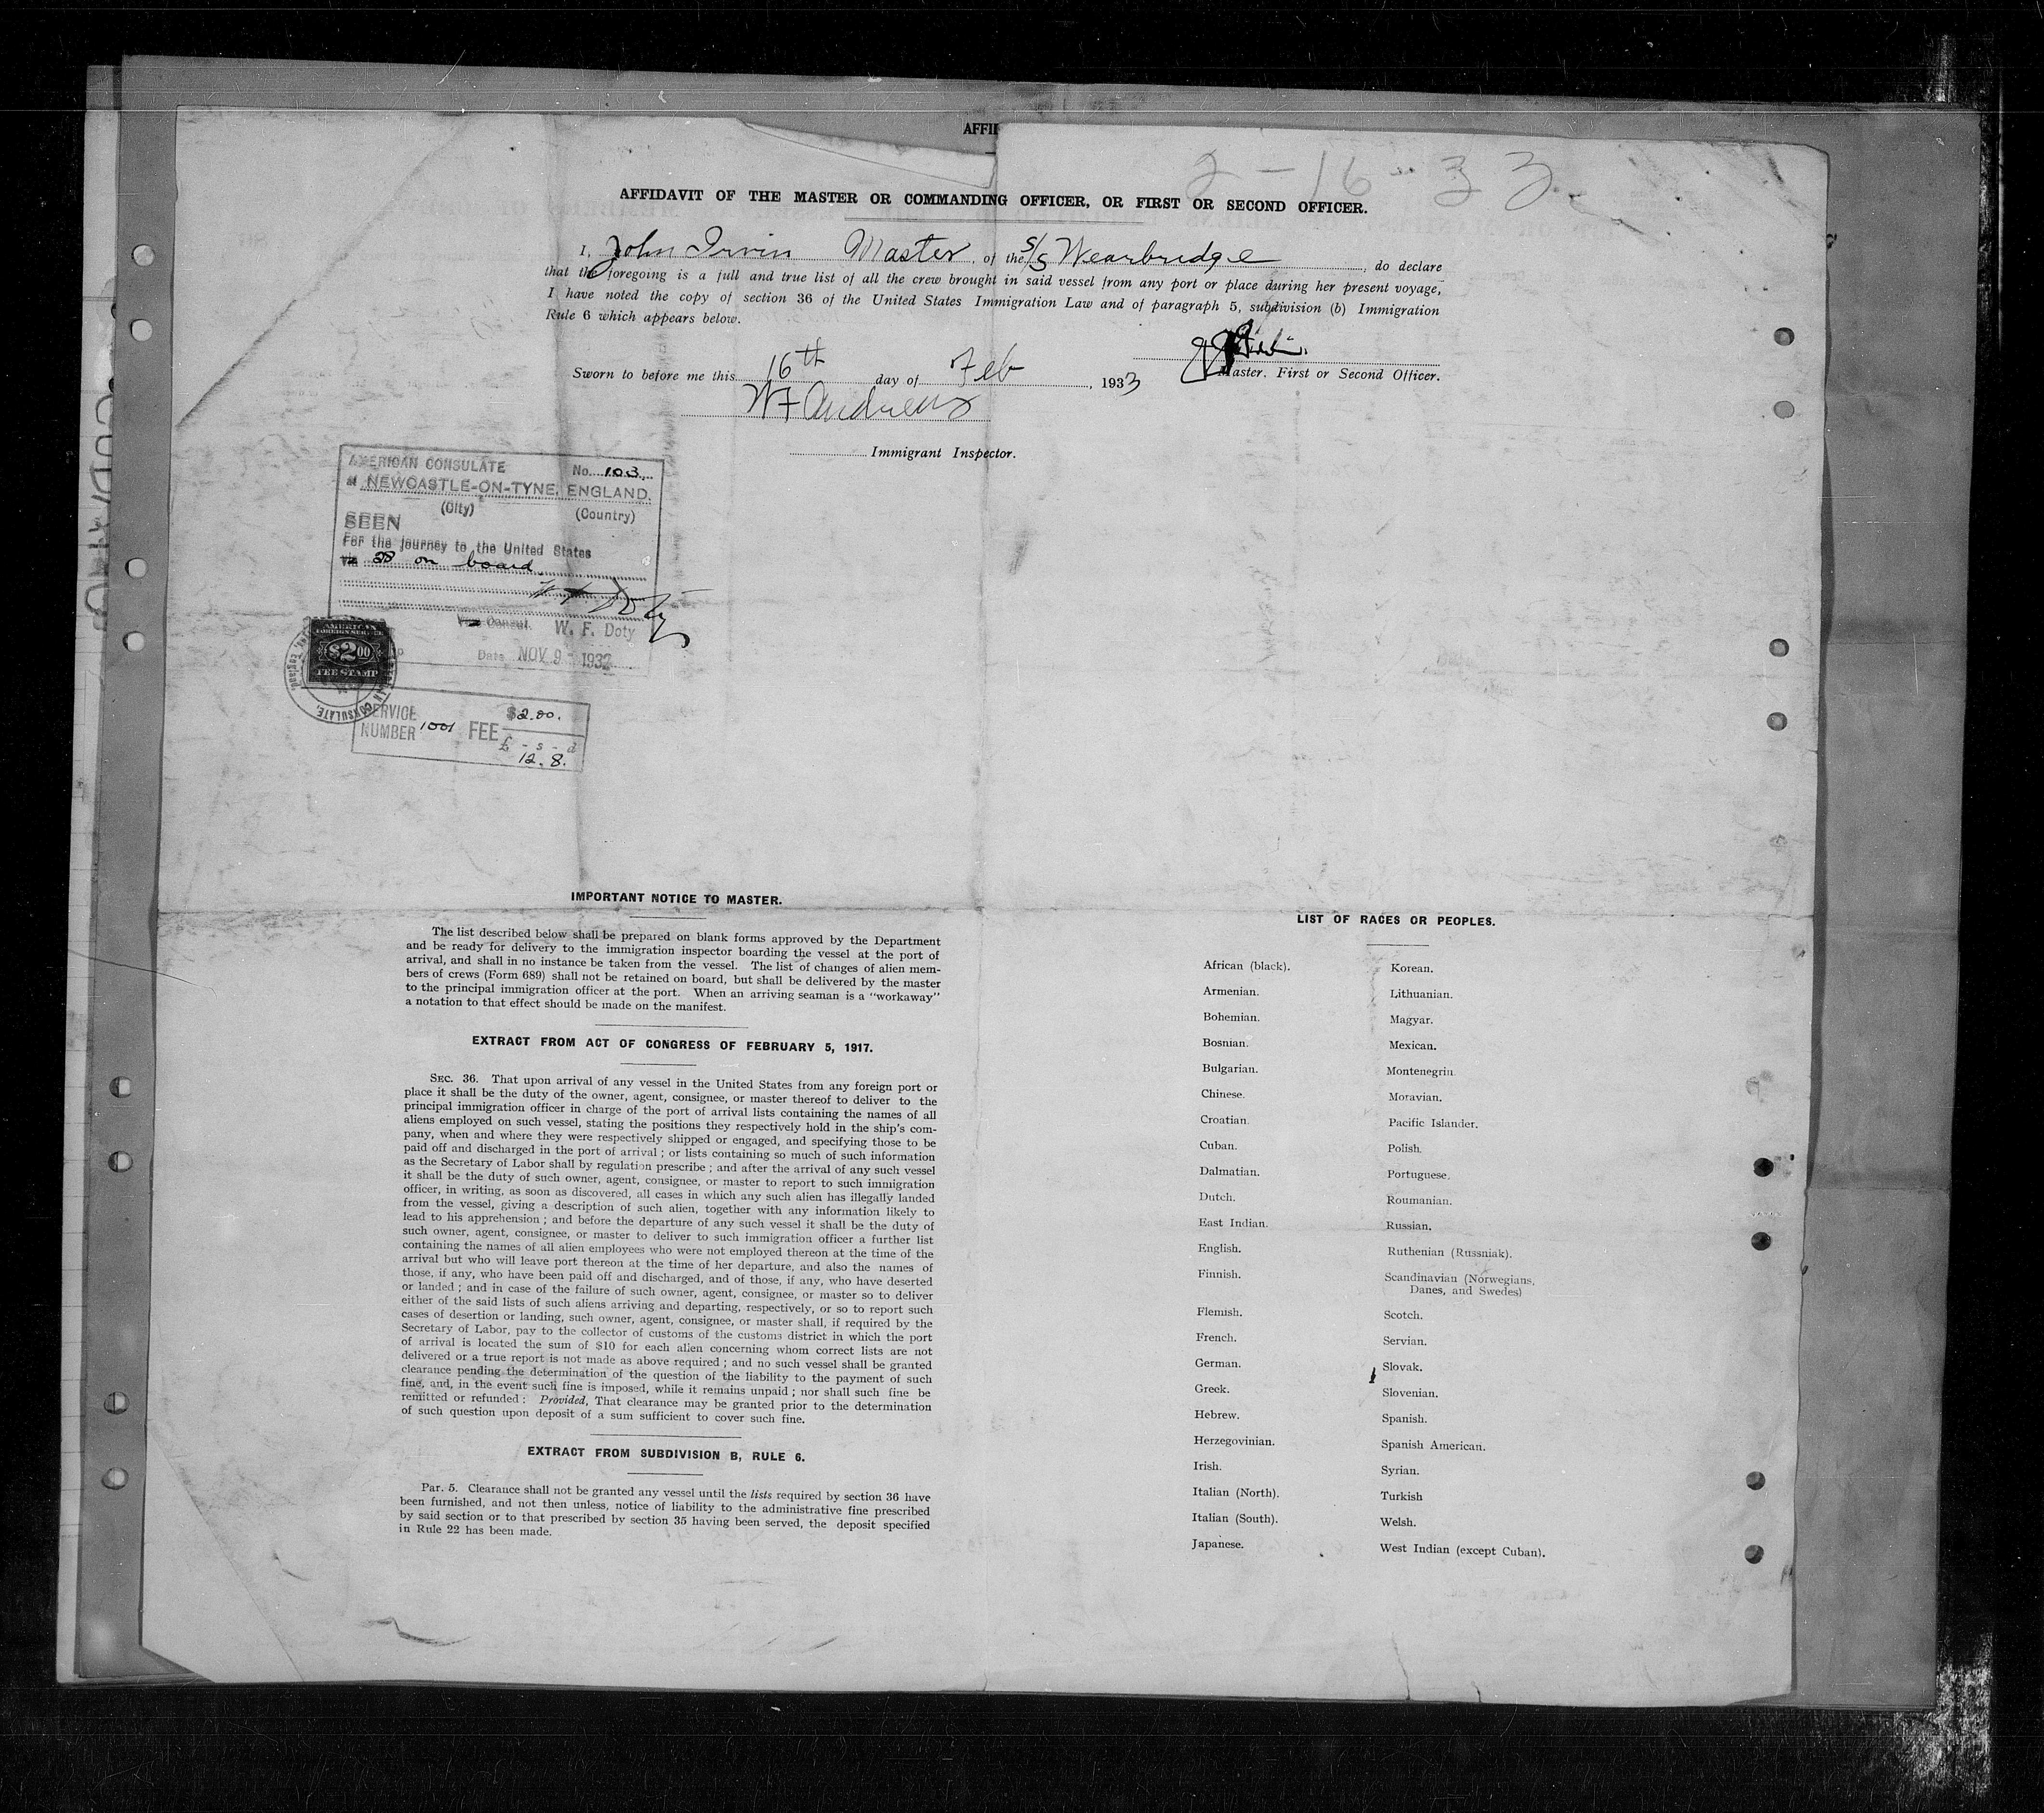 AFFI
2-16-33
AFFIDAVIT OF THE MASTER OR COMMANDING OFFICER, OR FIRST OR SECOND OFFICER.
I, John Irvin Master, of the S/S Wearbridge, do declare
that the foregoing is a full and true list of all the crew brought in said vessel from any port or place during her present voyage,
I have noted the copy of section 36 of the United States Immigration Law and of paragraph 5, subdivision (b) Immigration
Rule 6 which appears below.
Master, First or Second Officer.
Sworn to before me this 16th day of Feb, 1933
W F Andrews
Immigrant Inspector.
AMERICAN CONSULATE No. 103
at NEWCASTLE-ON-TYNE, ENGLAND.
(City) (Country)
SEEN
For the journey to the United States
via on board
Vice Consul. W. F. Doty
Date NOV 9 1932
AMERICAN
FOREIGN SERVICE
$2.00
FEE STAMP
CONSULATE,
England.
SERVICE
NUMBER 1001 FEE $2.00.
£ - s - d
12. 8.
IMPORTANT NOTICE TO MASTER.
The list described below shall be prepared on blank forms approved by the Department
and be ready for delivery to the immigration inspector boarding the vessel at the port of
arrival, and shall in no instance be taken from the vessel. The list of changes of alien mem-
bers of crews (Form 689) shall not be retained on board, but shall be delivered by the master
to the principal immigration officer at the port. When an arriving seaman is a "workaway"
a notation to that effect should be made on the manifest.
EXTRACT FROM ACT OF CONGRESS OF FEBRUARY 5, 1917.
SEC. 36. That upon arrival of any vessel in the United States from any foreign port or
place it shall be the duty of the owner, agent, consignee, or master thereof to deliver to the
principal immigration officer in charge of the port of arrival lists containing the names of all
aliens employed on such vessel, stating the positions they respectively hold in the ship's com-
pany, when and where they were respectively shipped or engaged, and specifying those to be
paid off and discharged in the port of arrival; or lists containing so much of such information
as the Secretary of Labor shall by regulation prescribe; and after the arrival of any such vessel
it shall be the duty of such owner, agent, consignee, or master to report to such immigration
officer, in writing, as soon as discovered, all cases in which any such alien has illegally landed
from the vessel, giving a description of such alien, together with any information likely to
lead to his apprehension; and before the departure of any such vessel it shall be the duty of
such owner, agent, consignee, or master to deliver to such immigration officer a further list
containing the names of all alien employees who were not employed thereon at the time of the
arrival but who will leave port thereon at the time of her departure, and also the names of
those, if any, who have been paid off and discharged, and of those, if any, who have deserted
or landed; and in case of the failure of such owner, agent, consignee, or master so to deliver
either of the said lists of such aliens arriving and departing, respectively, or so to report such
cases of desertion or landing, such owner, agent, consignee, or master shall, if required by the
Secretary of Labor, pay to the collector of customs of the customs district in which the port
of arrival is located the sum of $10 for each alien concerning whom correct lists are not
delivered or a true report is not made as above required; and no such vessel shall be granted
clearance pending the determination of the question of the liability to the payment of such
fine, and, in the event such fine is imposed, while it remains unpaid; nor shall such fine be
remitted or refunded: Provided, That clearance may be granted prior to the determination
of such question upon deposit of a sum sufficient to cover such fine.
EXTRACT FROM SUBDIVISION B, RULE 6.
Par. 5. Clearance shall not be granted any vessel until the lists required by section 36 have
been furnished, and not then unless, notice of liability to the administrative fine prescribed
by said section or to that prescribed by section 35 having been served, the deposit specified
in Rule 22 has been made.
LIST OF RACES OR PEOPLES.
African (black).
Armenian.
Bohemian.
Bosnian.
Bulgarian.
Chinese.
Croatian.
Cuban.
Dalmatian.
Dutch.
East Indian.
English.
Finnish.
Flemish.
French.
German.
Greek.
Hebrew.
Herzegovinian.
Irish.
Italian (North).
Italian (South).
Japanese.
Korean.
Lithuanian.
Magyar.
Mexican.
Montenegrin.
Moravian.
Pacific Islander.
Polish.
Portuguese.
Roumanian.
Russian.
Ruthenian (Russniak).
Scandinavian (Norwegians,
Danes, and Swedes)
Scotch.
Servian.
Slovak.
Slovenian.
Spanish.
Spanish American.
Syrian.
Turkish
Welsh.
West Indian (except Cuban).